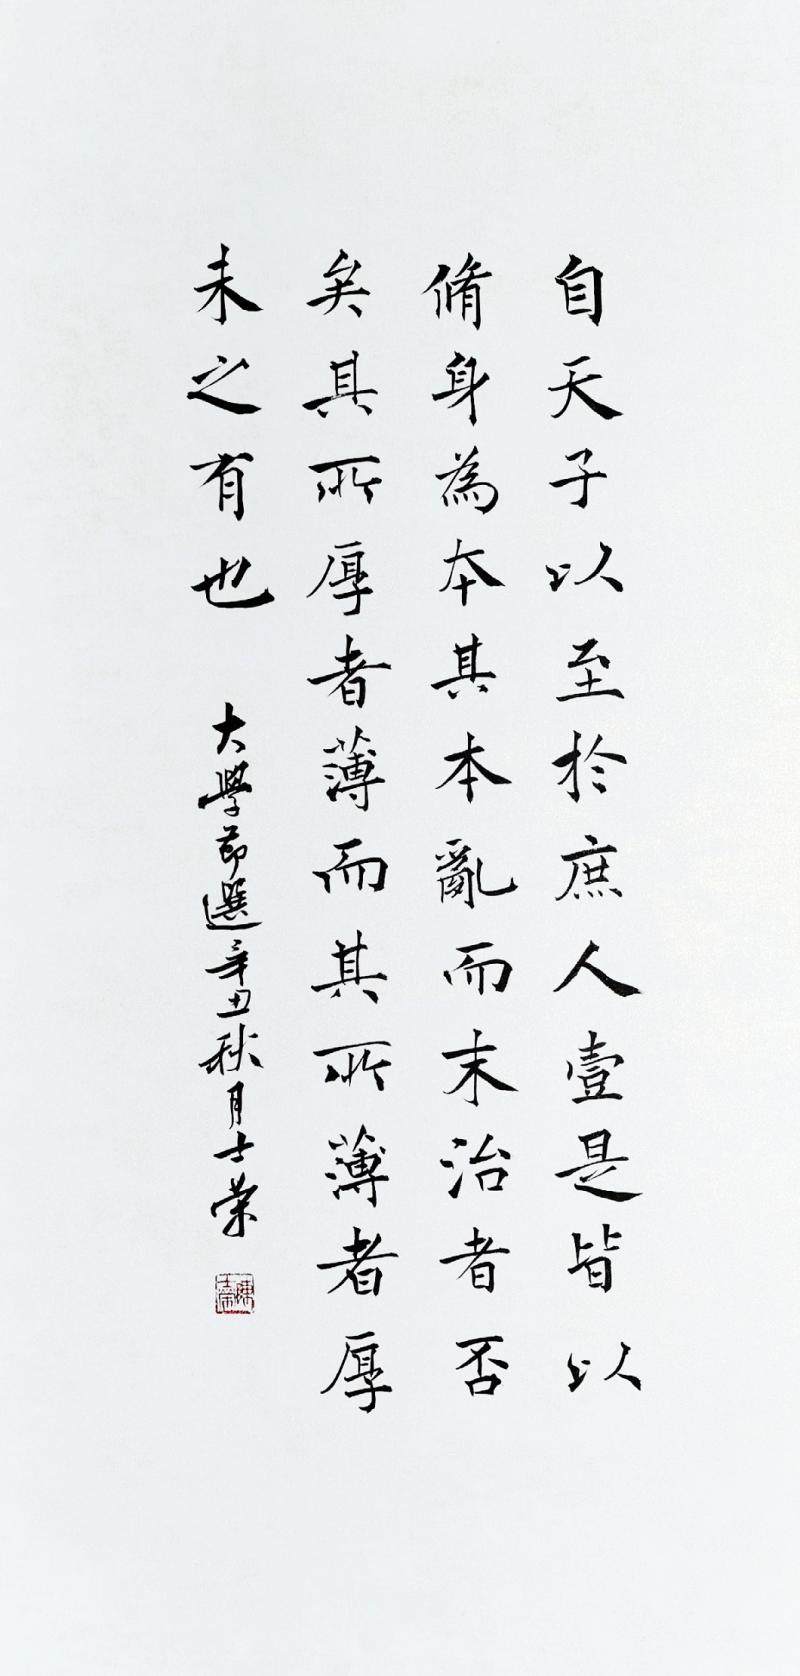 自天子以至於庶人壹是皆以
脩身為本其本亂而末治者否
矣其所厚者薄而其所薄者厚
未之有也
大學節選辛丑秋月士榮
陳士榮